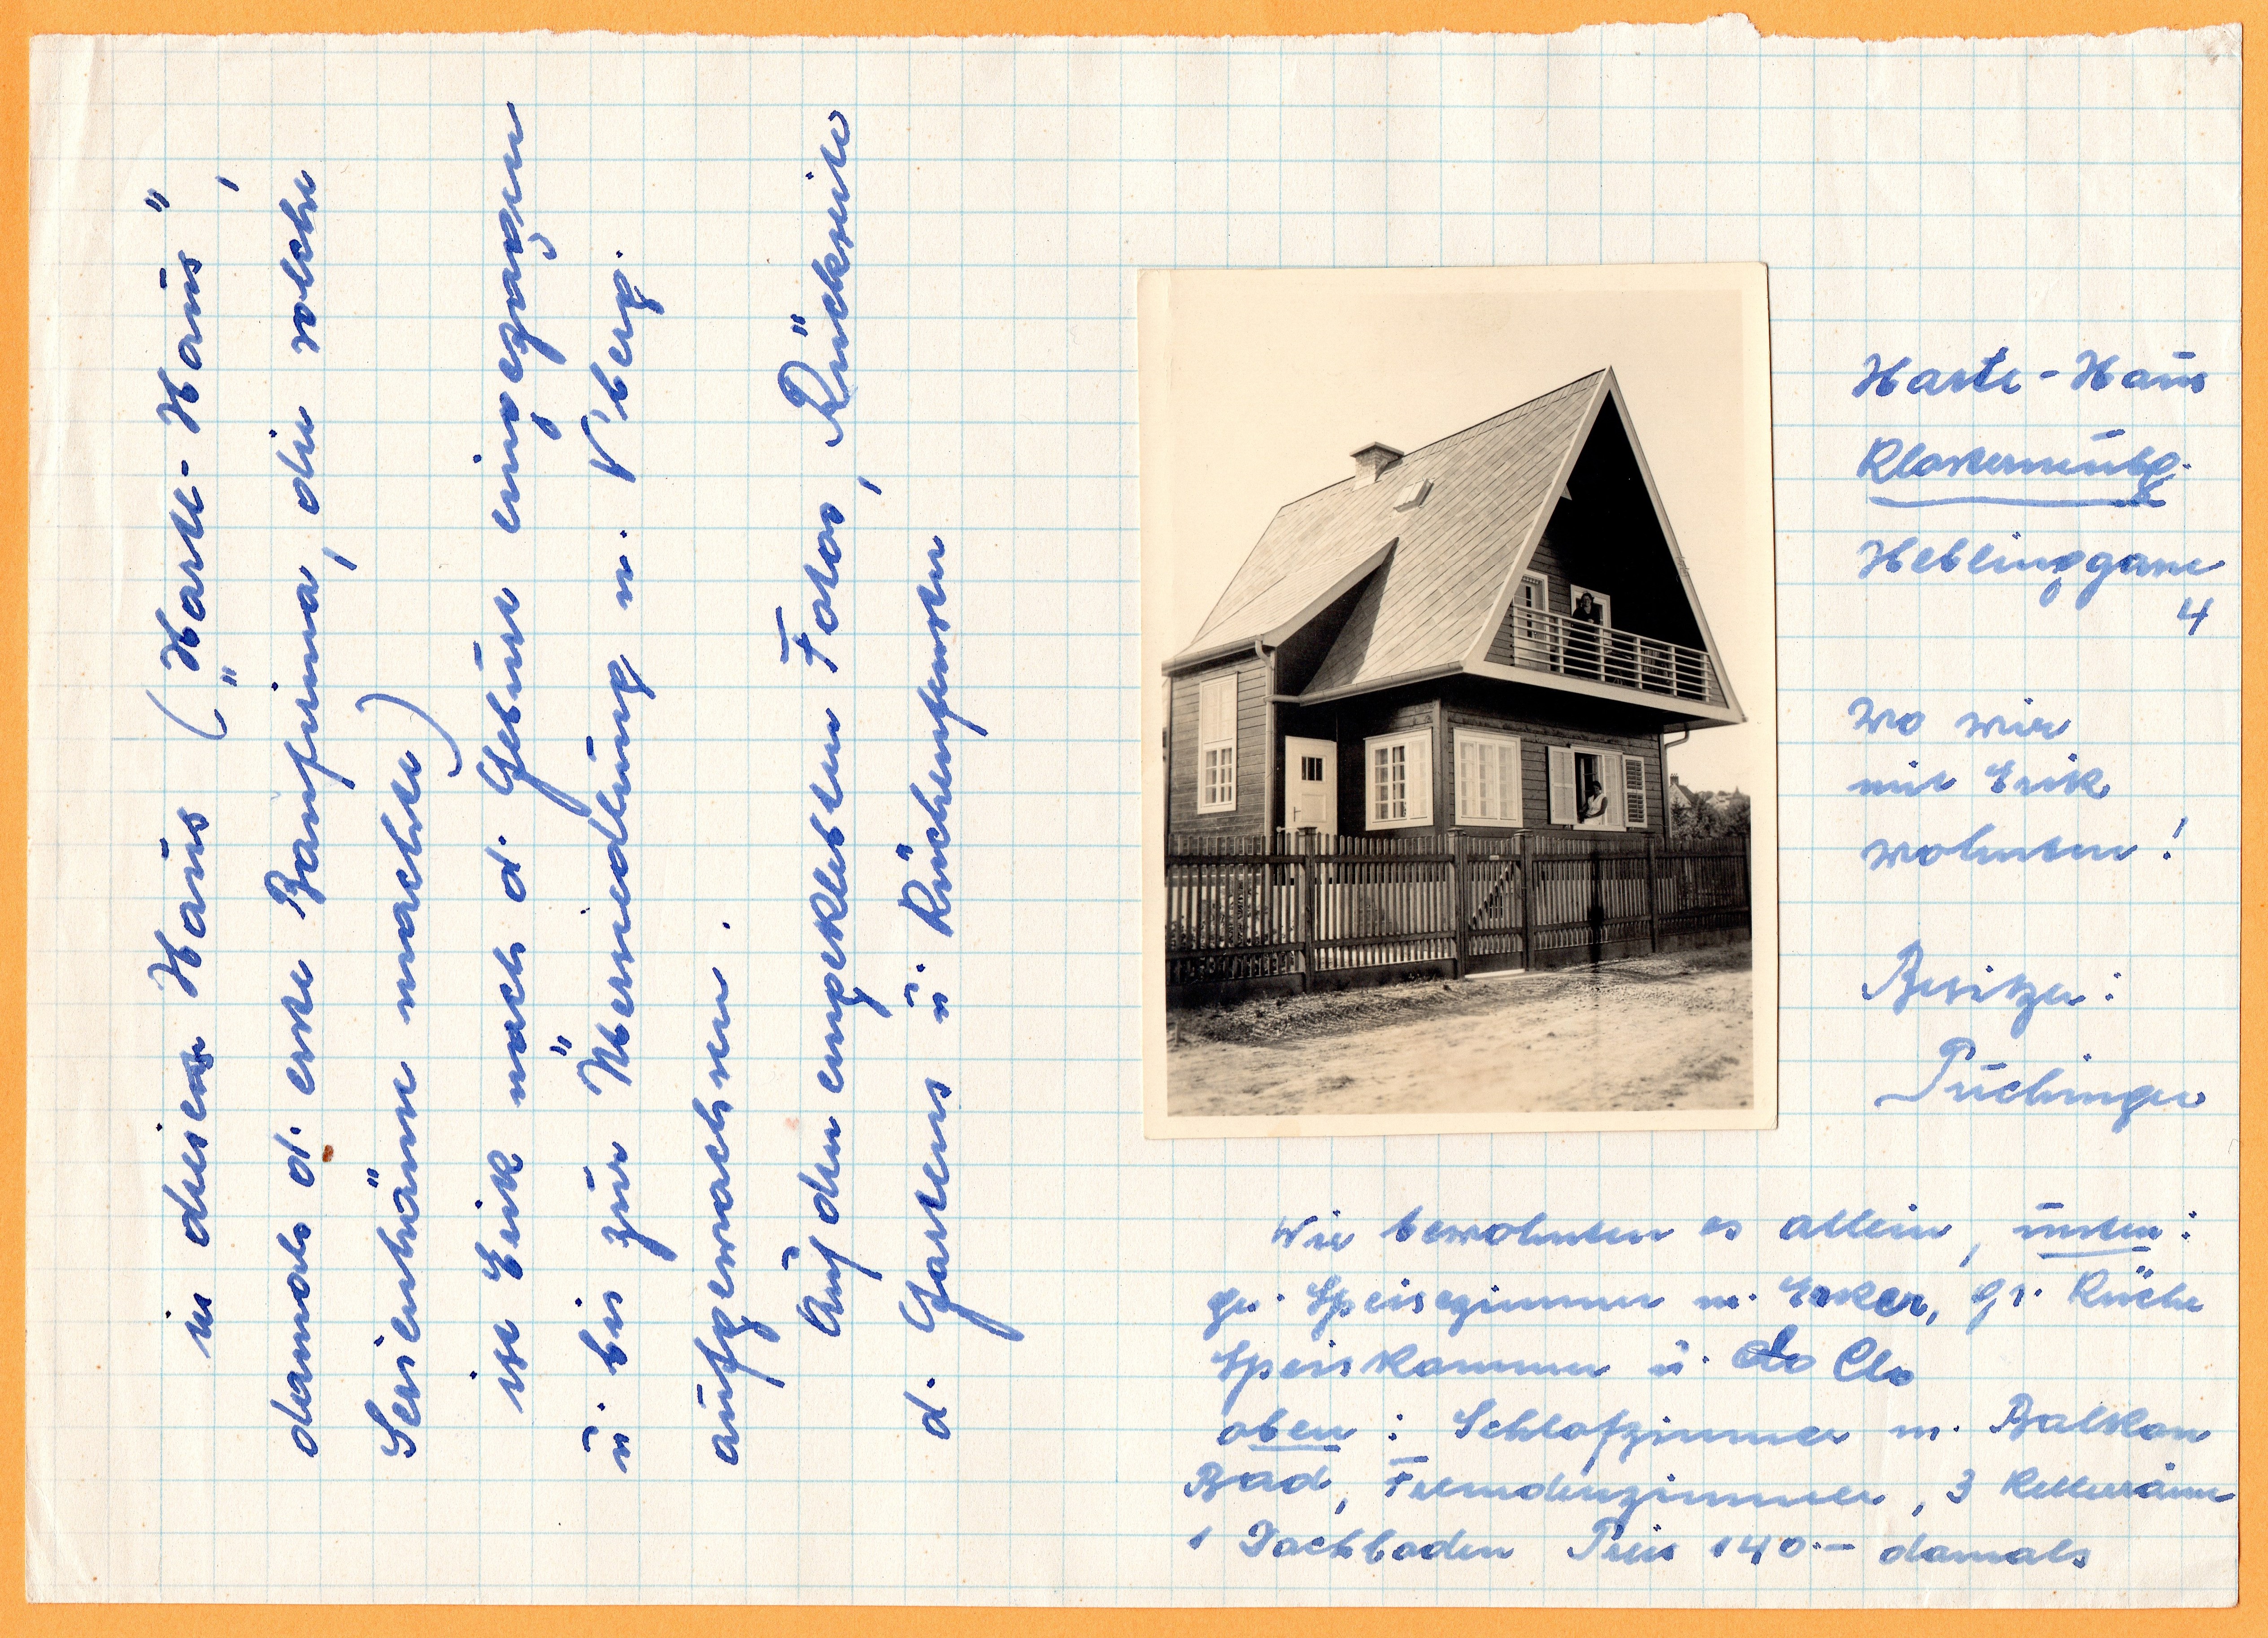 in diesem Haus ("Harte-Haus",
damals d. erste Baufirma, die solche
Serienhäuser machte)
ist Erik nach d. Geburt eingezogen
u. bis zur Übersiedlung n. N'berg.
aufgewachsen.
Auf den eingeklebten Fotos, Rückseite
d. Gartens u. Küchenfenster
Harte-Haus
Klosterneubg.
Heblinggasse
4
Wo wir
mit Erik
wohnten!
Besitzer:
Puchinger
Wir bewohnten es allein, unten:
gr. Speisezimmer m. Erker, gr. Küche
Speiskammer u. Clo
oben: Schlafzimmer m. Balkon
Bad, Fremdenzimmer, 3 Kellerräume
1 Dachboden Preis 140.- damals